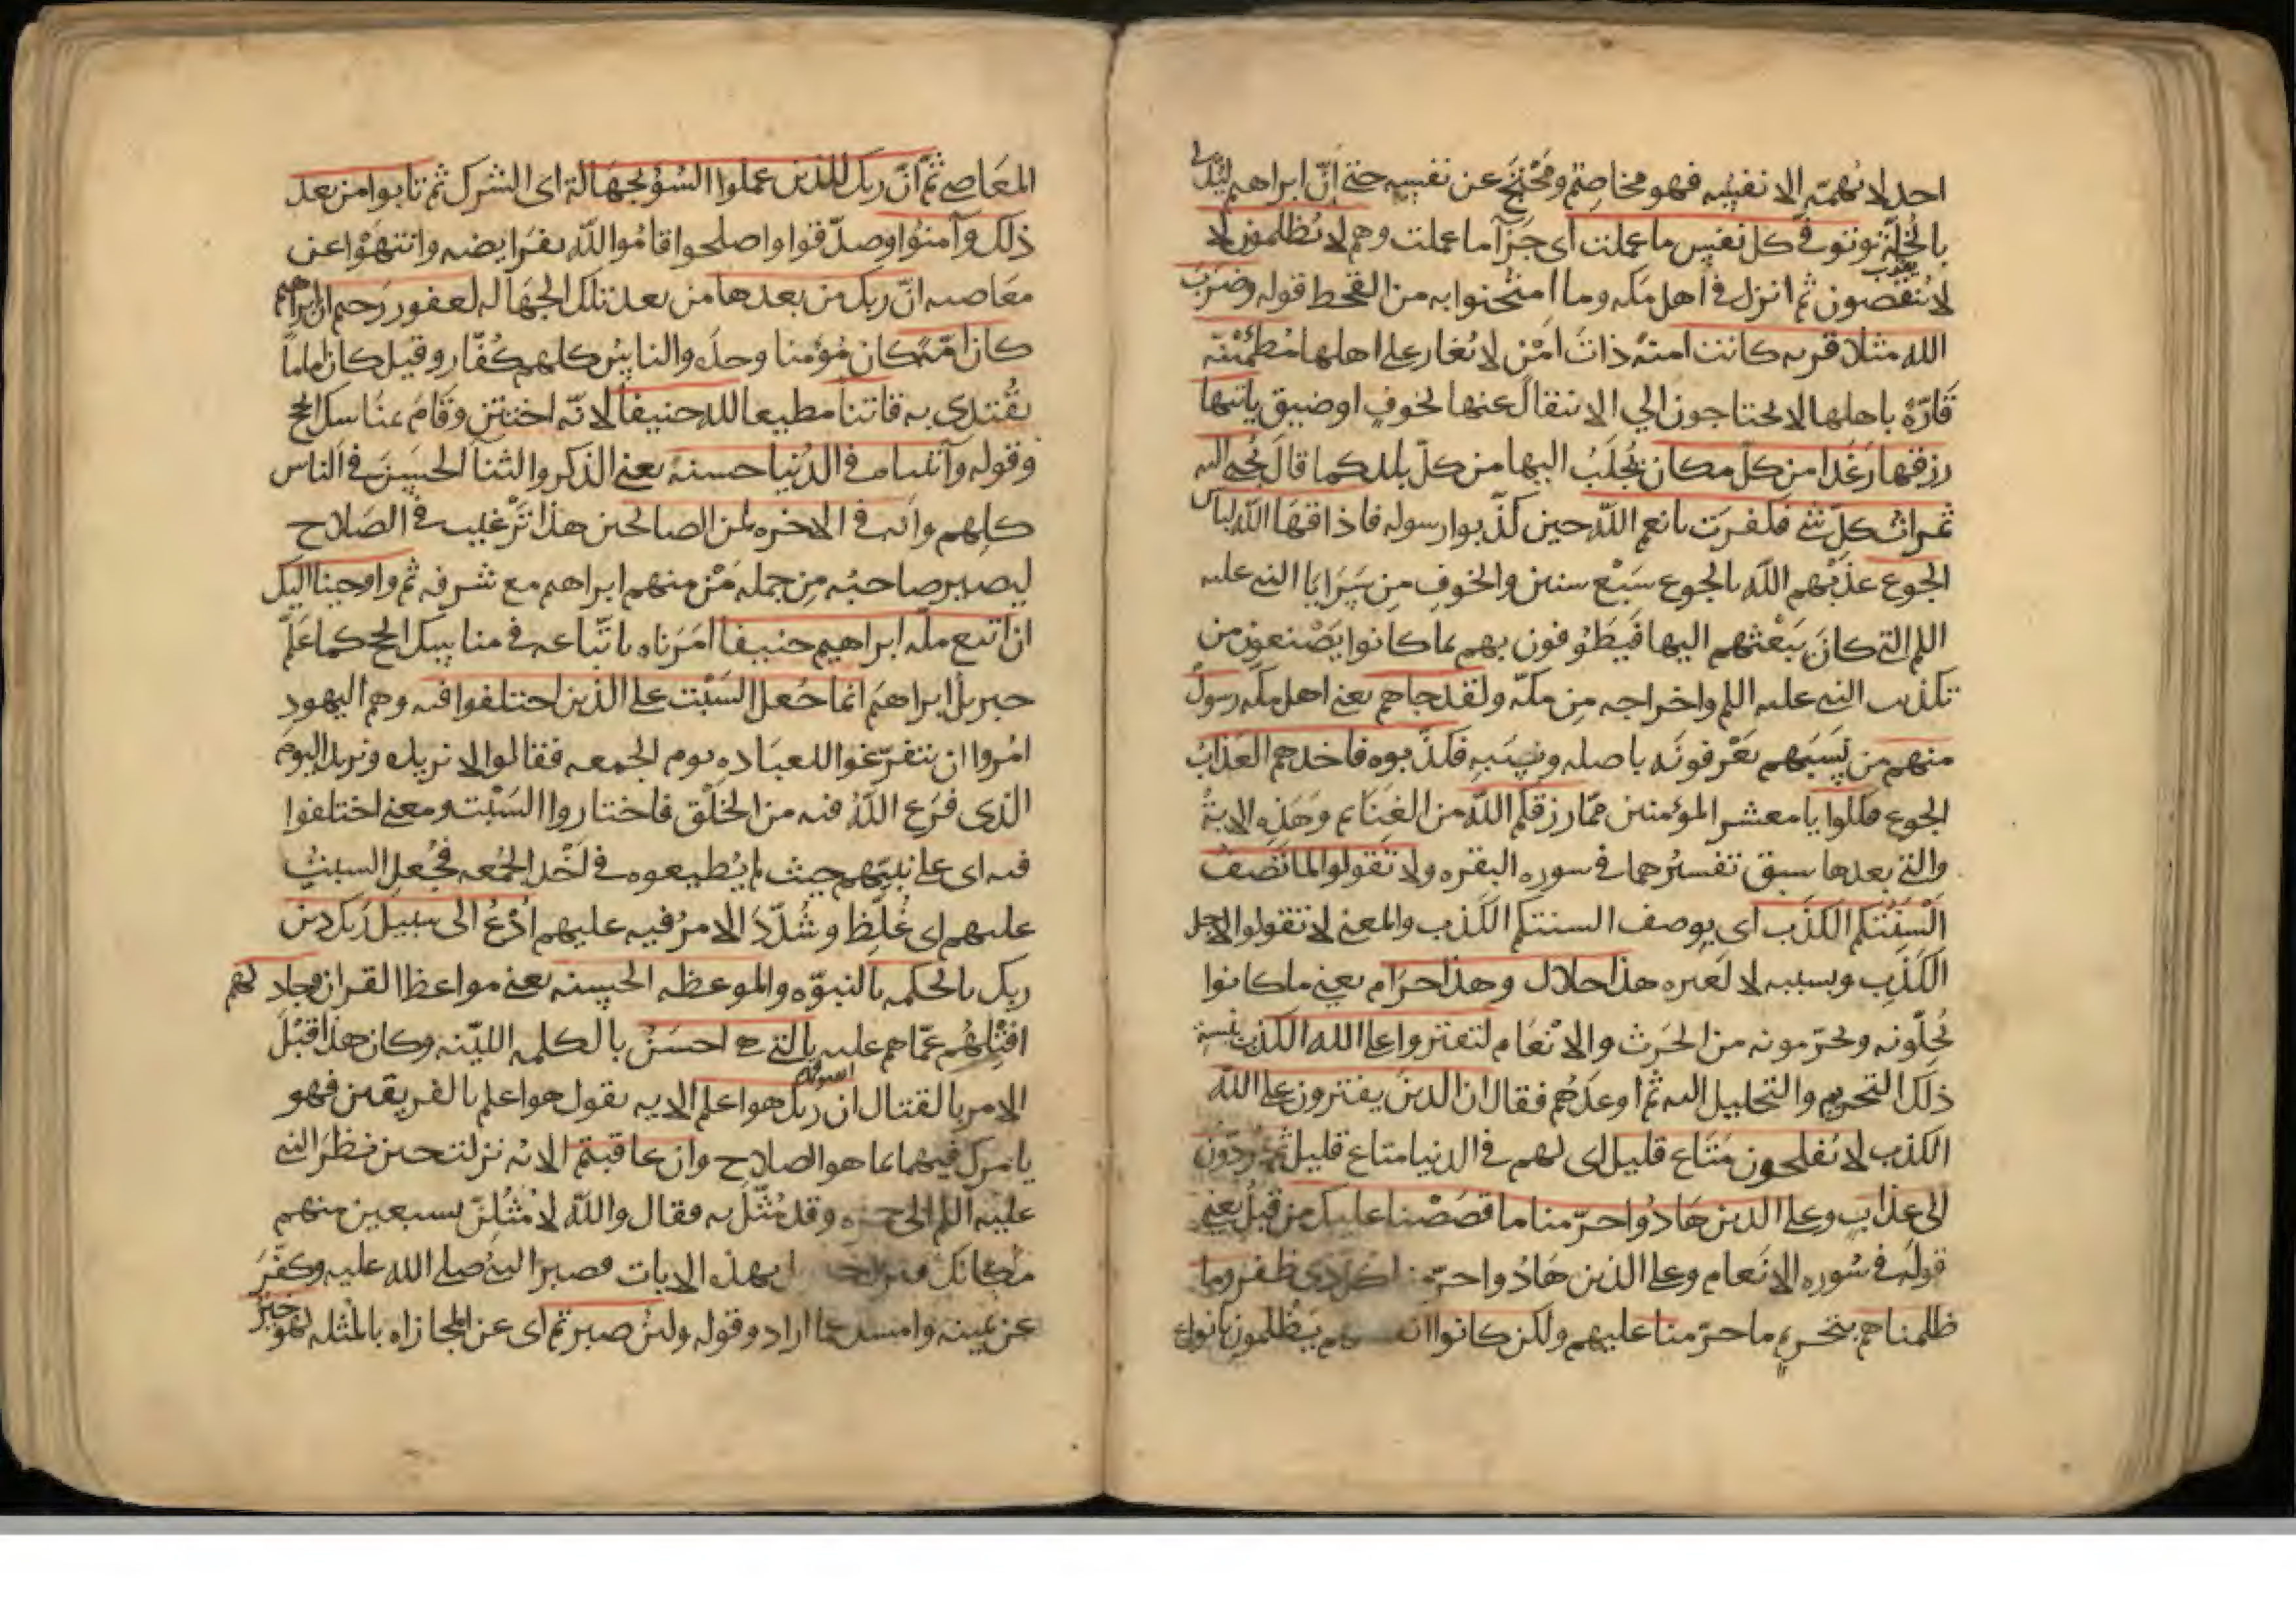 احد لا تهمّه الا نفسه فهو مخاصم ومُحْتَجّ عن نفسه حتى اِنّ ابراهيم ليُدلى
بالخُلّة وتوفى كل نفس ما عملت اى جزآ ما عملت وهم لا يُظلمون لا
لا يُنقصون ثم انزل فى اهل مكه وما امتُحنوا به من القحط قوله وضرَبَ
الله مثلا قريه كانت امنةً ذاتَ امْنٍ لا يُغار على اهلها مُطْمَئنّه
قَارّة باهلها لا يحتاجون الى الانتقال عنها لخوفٍ او ضيق ياتيها
رزقها رَغَدا من كلّ مكان يُجلَبُ اليها من كلّ بلد كما قال يُجبى اليه
ثمراتُ كلِّ شى فكفرَت بانعم اللّه حين كذّبوا رسوله فاذاقهَا اللّه لباس
الجوع عذّبهم اللّه بالجوع سَبْع سنين والخوفِ مِن سَرَايَا النبى عليه
اللم التى كانَ يَبْعثهم اليها فيَطُوفون بهم بما كانوا يَصْنعون من
تكذيب النبى عليه اللم واخراجه مِن مكّة ولقد جاهم يعنى اهل مكه رسولٌ
منهم من نَسَبهم يَعْرفونَه باصله ونَسَبِه فكذّبوه فاخدهم العَذابُ
الجوع فكلوا يا معشر المؤمنين ممّا رزقكم اللّه من الغنَايم وهَذِه الايةُ
والتى بعدها سبق تفسيرُهما فى سوره البقره ولا تقولوا لما تَصفُ
اَلْسِنَتُكم الكَذب اى بوصف السنتكم الكَذب والمعنى لا تقولوا لاجل
الكَذِب وبسببه لا لغيره هذا حلال وهذا حرَام يعنى ما كانوا
يُحلّونه ويُحرّمونه من الحَرث والانْعَام لتفتروا على الله الكذب بنسبة
ذلك التحريم والتحليل اليه ثم اوعدَهُم فقال ان الدين يفترون على اللّه
الكذب لا يُفلحون مَتَاع قليل اى لهم فى الدنيا متاع قليل ثم يُردّون
الى عذاب وعلى الدين هَادُوا حرّمنا ما قصَصْنا عليك من قبلُ يعنى
قولَه فى سُوره الانعام وعلى الذين هَادُوا حرّمنا كل ذى ظفر وما
ظلمناهم بتحريم ما حرّمنا عليهم ولكن كانوا انفسهم يَظْلمون بانواع
المعَاصى ثُمَّ انّ ربك للذين عملوا السُوءَ بجهَالة اى الشرك ثم تابوا من بعد
ذلك وآمنُوا وصدّقوا واصلحوا قامُوا للّه بفرَايضه وانتهَوْا عن
معَاصيه انّ ربك من بعدها من بعد تلك الجهَاله لغفور رَحيم ان ابراهيم
كان امّةً كان مُؤمنا وحدَه والناسُ كلهم كُفّار وقيل كان اماماً
يقُتدى به قانتاً مطيعا لله حنيفاً لانّه اختتن وقَامَ بمنَاسك الحج
وقوله وآتيناه فى الدُنيا حسنةً يعنى الذكر والثنا الحسَنَ فى الناس
كلهم وانه فى الاخره لمن الصالحين هذا تَرْغيب فى الصَلاح
ليصير صاحبُه مِن جمله مَنْ منهم ابراهيم مع شرفه ثم واوحينا اليك
ان اتبع ملّه ابراهيم حنيفا امَرْناه باتّباعه فى مناسك الحج كما عَلَّم
جبريل ابراهيم انما جُعل السَبْت على الذين اختلفوا فيه وهم اليهودِ
امُروا ان يتفرّغوا للعبَاده يوم الجمعه فقالوا لا نريده ونريد اليومَ
الذى فرَغ اللّهُ فيه من الخلق فاختاروا السَبْت ومعنى اختلفوا
فيه اى على نبيّهم حيث لم يُطيعوه فى اَخْذ الجُمُعه فجُعل السبتُ
عليهم اى غُلِّظ وشُدّدَ الامرُ فيه عليهم اُدْعُ الى سَبيل رَبك دين
ربك بالحكمه بالنبوّه والموعظه الحسنه يعنى مواعظ القران وجادلهم
افْتِلْهُم عمّا هم عليه بالتى هى احسَنُ بالكلمه الليّنه وكان هذا قَبْلَ
الامر بالقتال ان ربك هو اعلم الايه يقول هو اعلم بالفريقين فهو
يامرك فيهما بما هو الصلاح وان عاقبتم الايه نزلت حين نظرَ النبى
عليه اللم الى حمزه وقد مُثّل به فقال واللّه لاُمثّلنّ بسبعين منهم
مكانك فنزل جبريل بهذه الايات فصبر النبى صلى الله عليه وكفّرَ
عن يمينه وامسك عما اراد وقوله ولئن صبرتم اى عن المجازاه بالمُثله لهو خيرٌ